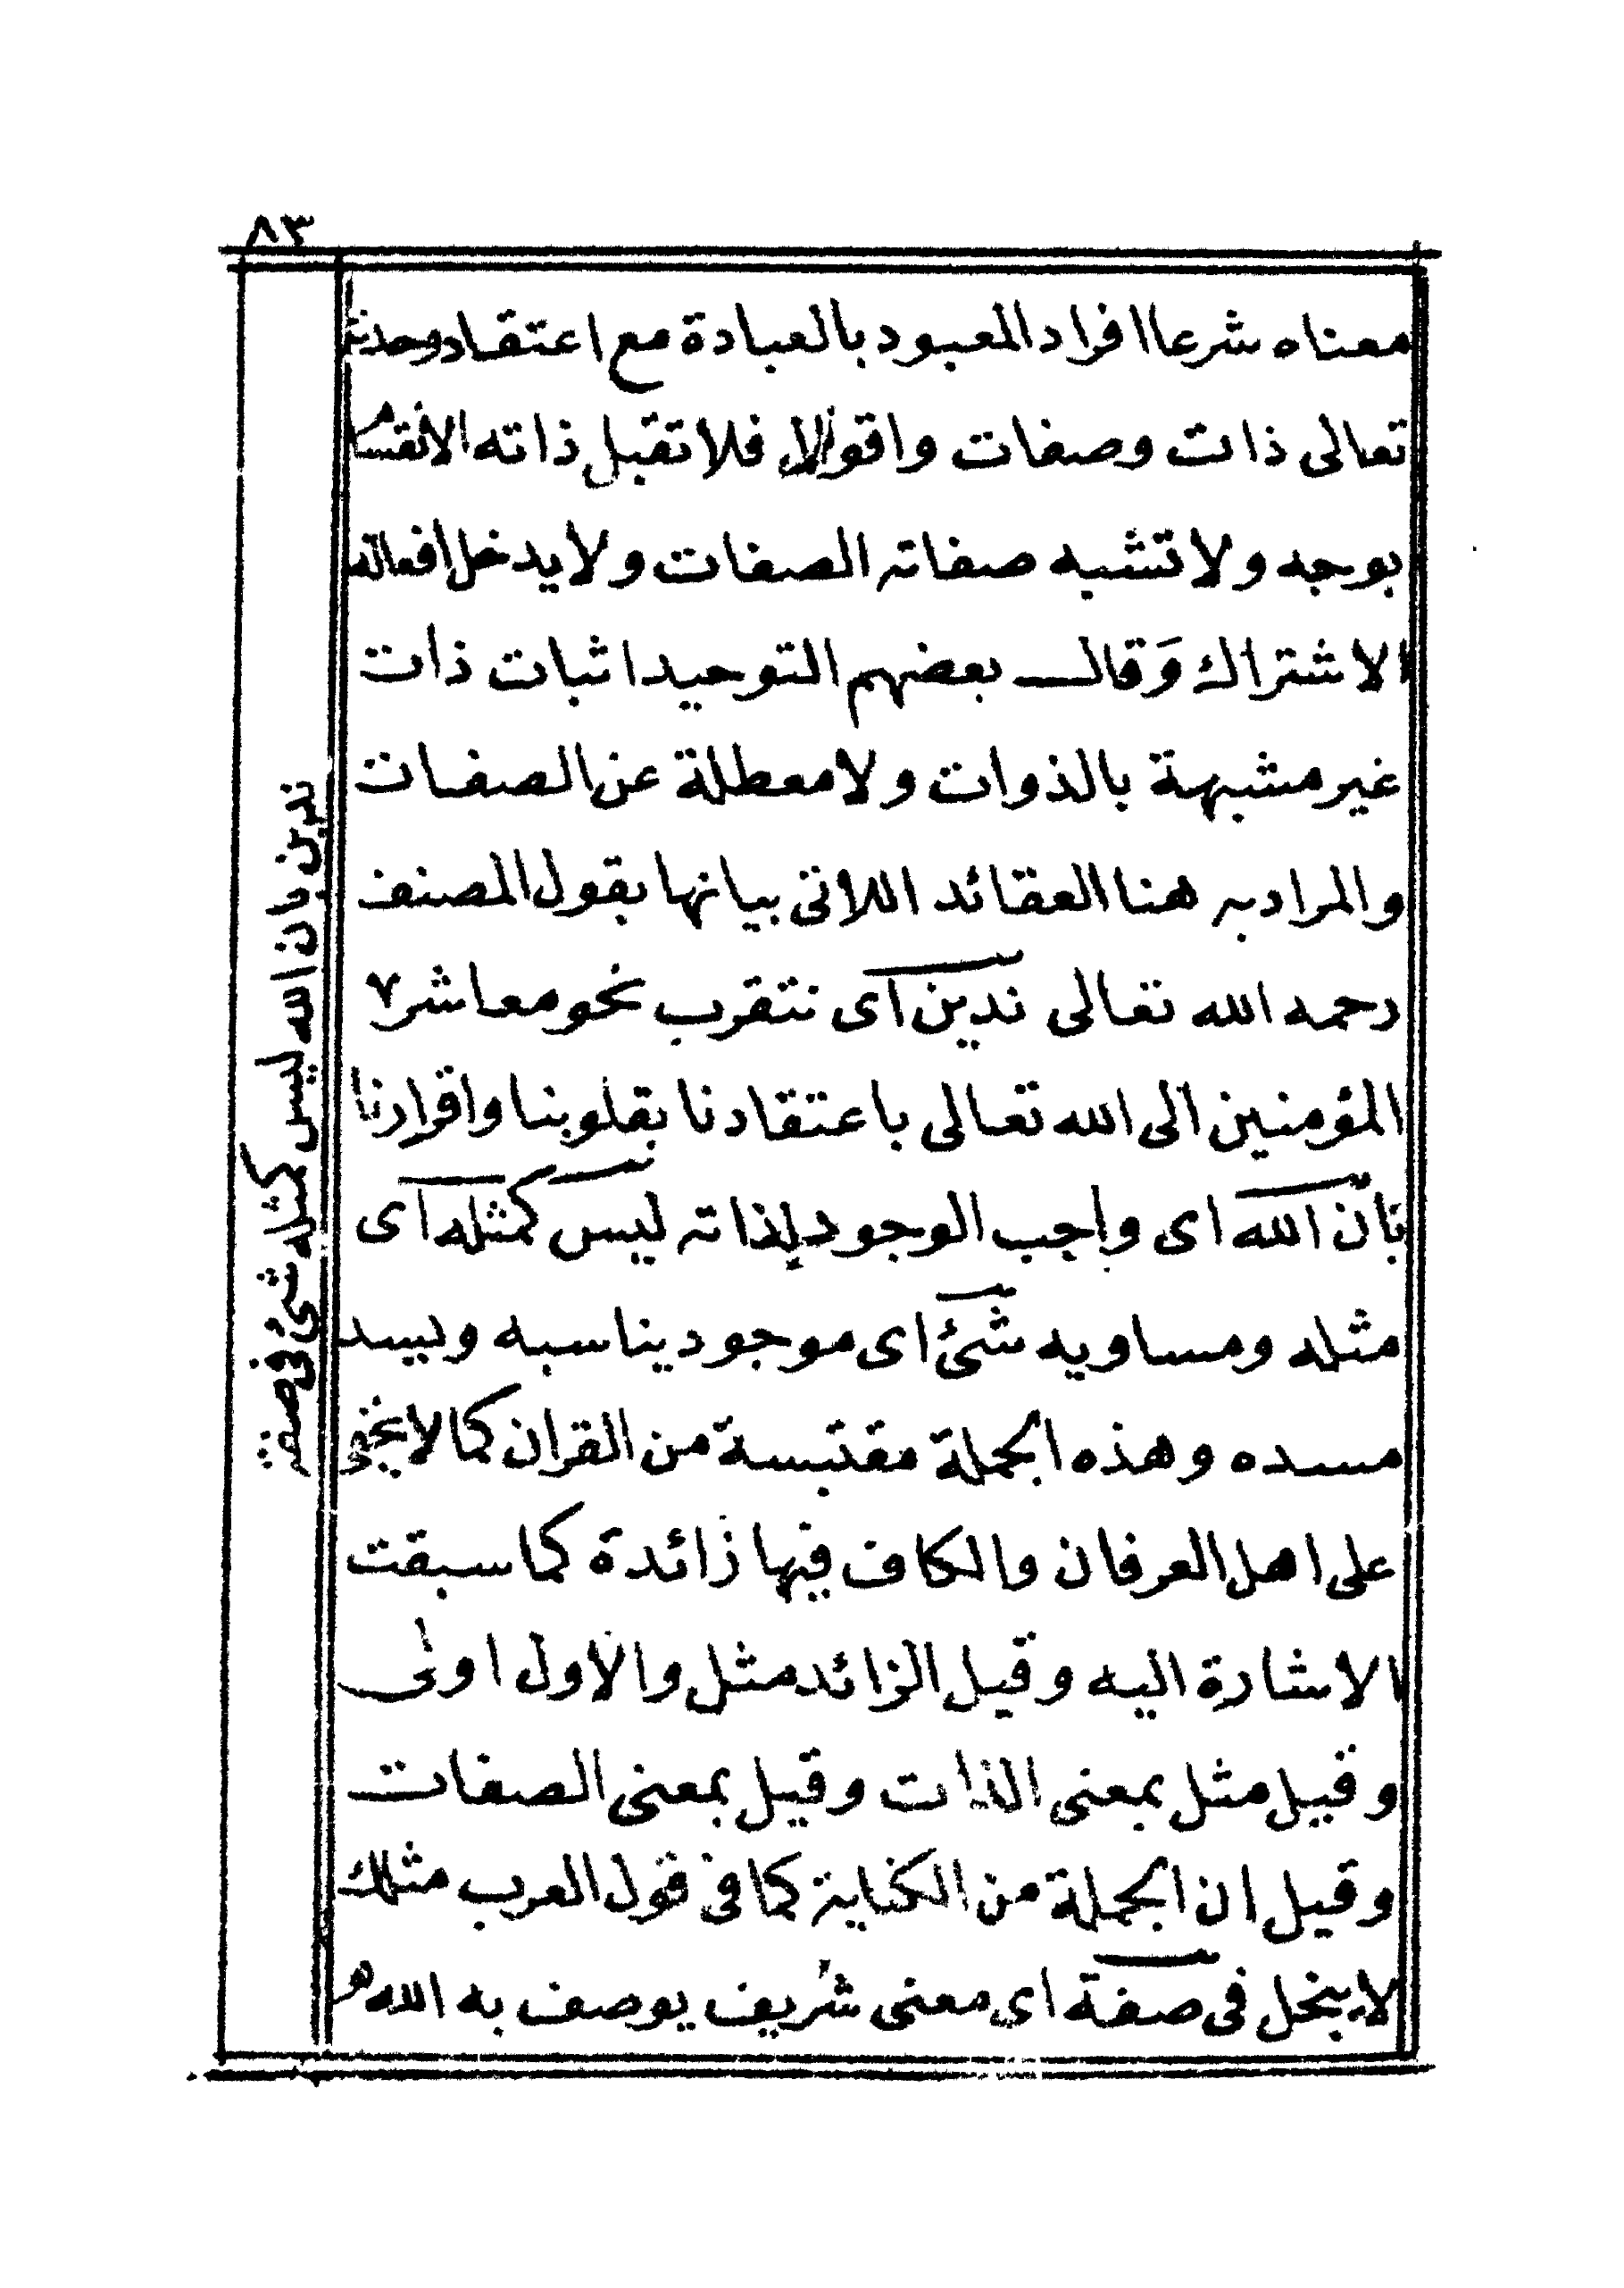 ٨٣
معناه شرعا افراد المعبود بالعبادة مع اعتقاد وحدته
تعالى ذات وصفات واقوالا فلا تقبل ذاته الانقسام
بوجه ولا تشبه صفاته الصفات ولا يدخل افعاله
الاشتراك وَقال بعضهم التوحيد اثبات ذات
غير مشبهة بالذوات ولا معطلة عن الصفات
والمراد به هنا العقائد اللاتى بيانها بقول المصنف
رحمه الله تعالى ندين اى نتقرب نحو معاشر
المؤمنين الى الله تعالى باعتقادنا بقلوبنا واقرارنا
بانّ الله اى واجب الوجود لذاته ليس كمثله اى
مثله ومساويه شئ اى موجود يناسبه ويسد
مسده وهذه الجملة مقتبسة من القران كما لا يخفى
على اهل العرفان والكاف فيها زائدة كما سبقت
الاشارة اليه وقيل الزائد مثل والاول اولى
وقيل مثل بمعنى الذات وقيل بمعنى الصفات
وقيل ان الجملة من الكناية كما فى قول العرب مثلك
لا يبخل فى صفة اى معنى شريف يوصف به الله
ندين بان الله ليس كمثله شئ فى صفة